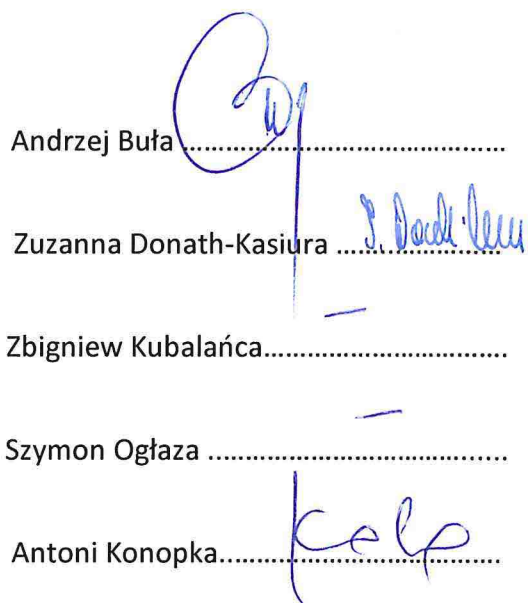 Andrzej Buła ..........................................
Zuzanna Donath-Kasiura .....................
Zbigniew Kubalańca................................
Szymon Ogłaza ......................................
Antoni Konopka.....................................